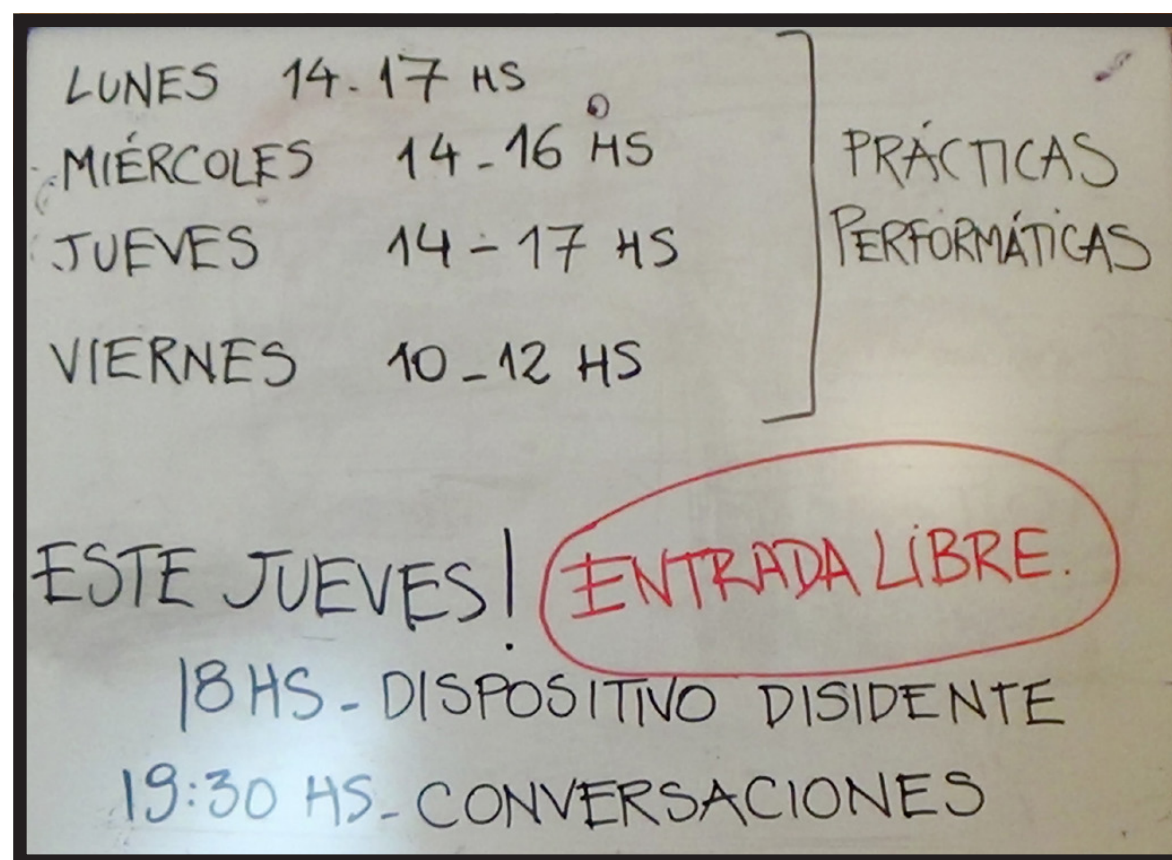 LUNES 14-17 HS
MIÉRCOLES 14-16 HS
JUEVES 14-17 HS
VIERNES 10-12 HS
PRÁCTICAS
PERFORMÁTICAS
ESTE JUEVES! ENTRADA LIBRE.
18 HS - DISPOSITIVO DISIDENTE
19:30 HS - CONVERSACIONES